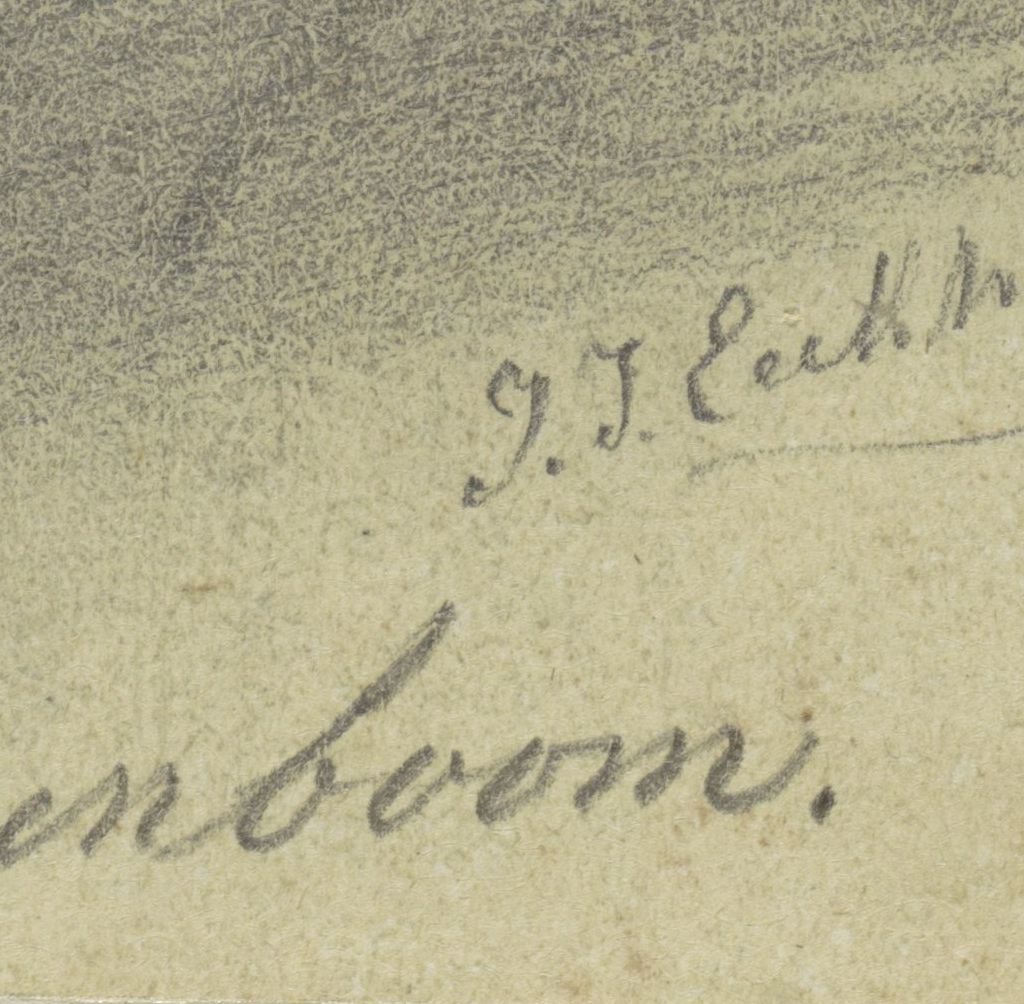 J. J. Eeckh
enboom.